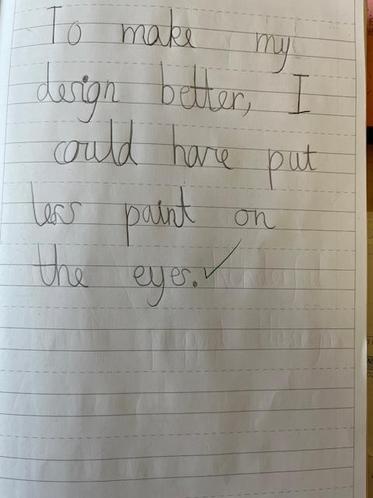 To make my
design better, I
could have put
less paint on
the eyes.✓